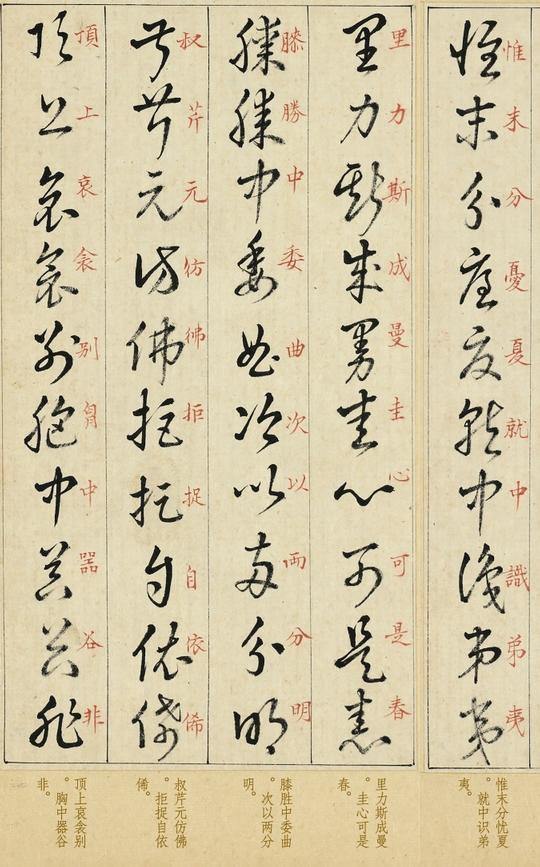 惟末分憂夏就中識弟夷
里力斯成曼圭心可是春
膝勝中委曲次以両分明
叔芹元仿彿拒捉自依俙
頂上哀衾别胷中器谷非
惟末分忧夏
。就中识弟
夷。
里力斯成曼
。圭心可是
春。
膝胜中委曲
。次以两分
明。
叔芹元仿佛
。拒捉自依
俙。
顶上哀衾别
。胸中器谷
非。